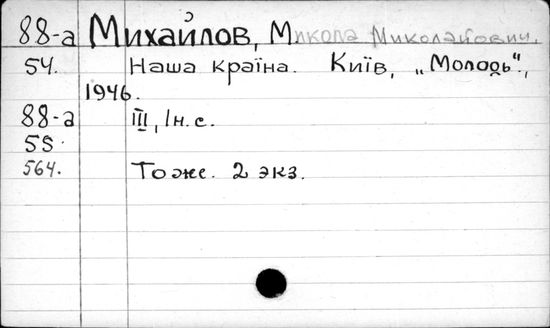 88-а Михайлов, Микола Миколайович.
54. Наша країна. Київ, „Молодь“,
1946.
88-а III, Iн. с.
55.
564. Тоже. 2 экз.